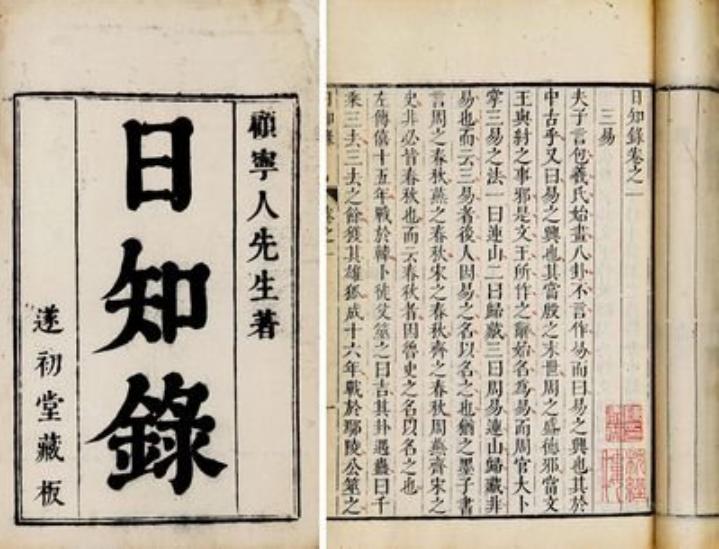 顧寧人先生著
日知錄
遂初堂藏板
日知錄卷之一
三易
夫子言包羲氏始畫八卦不言作易而曰易之興也其於
中古乎又曰易之興也其當殷之末世周之盛德邪當文
王與紂之事邪是文王所作之辭始名為易而周官大卜
掌三易之法一曰連山二曰歸藏三曰周易連山歸藏非
易也而云三易者後人因易之名以名之也猶之墨子書
言周之春秋燕之春秋宋之春秋齊之春秋周燕齊宋之
史非必皆春秋也而云春秋者因魯史之名以名之也
左傳僖十五年戰於韓卜徒父筮之曰吉其卦遇蠱曰千
乘三去三去之餘獲其雄狐成十六年戰於鄢陵公筮之
日知錄
卷之一